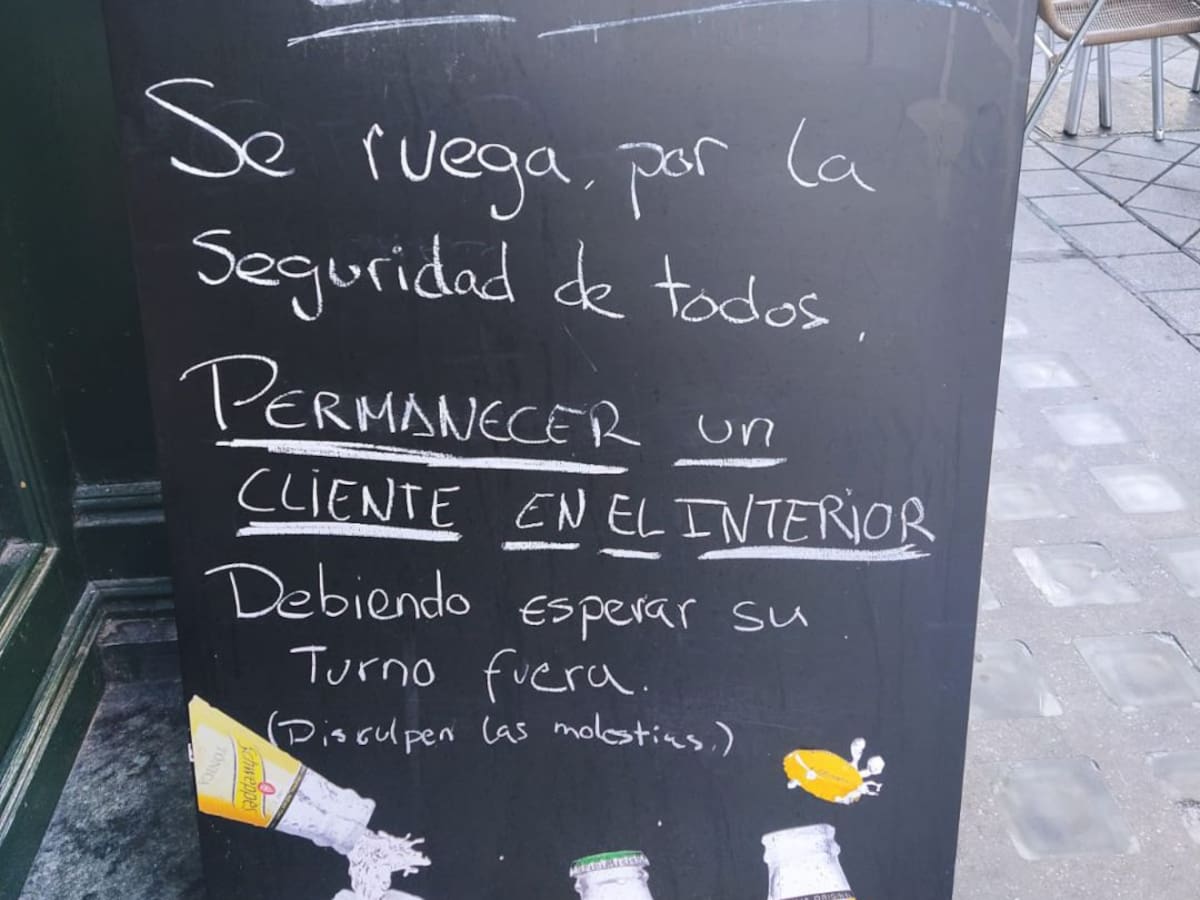 Se ruega, por la
Seguridad de todos,
PERMANECER un
CLIENTE EN EL INTERIOR
Debiendo esperar su
Turno fuera.
(Disculpen las molestias.)
Schweppes
TONIC